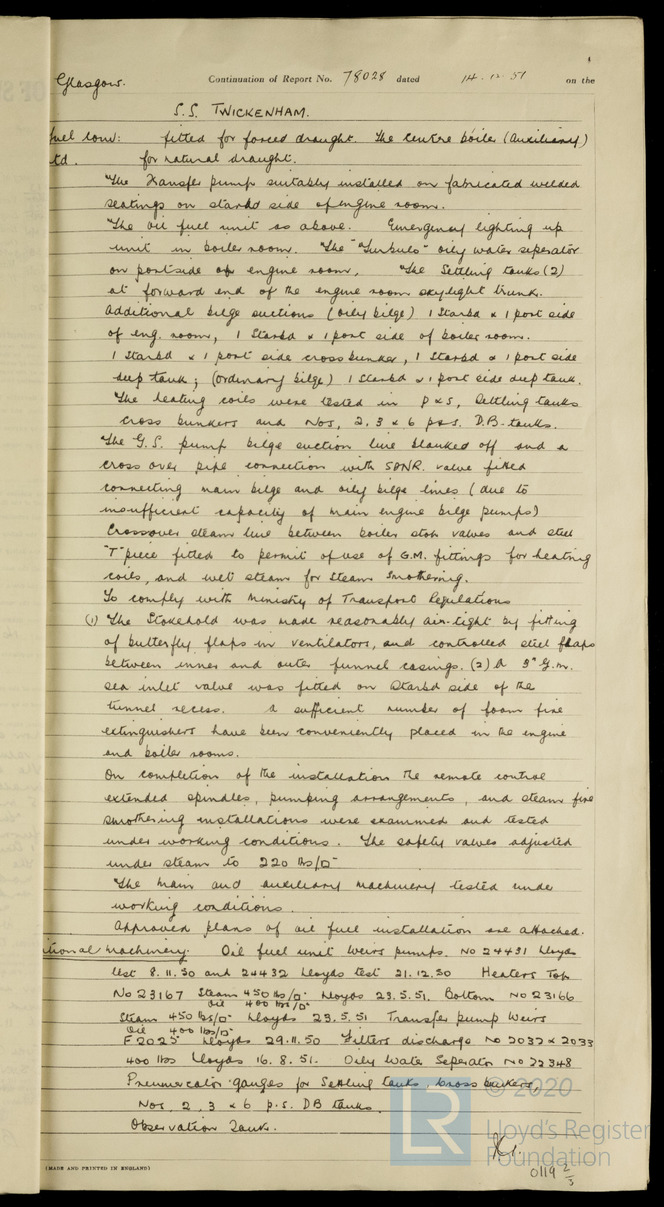 Glasgow. Continuation of Report No. 78028 dated 14.12.51 on the
S.S. TWICKENHAM.
fuel conv: fitted for forced draught. The centre boiler (Auxiliary)
td. for natural draught.
The Transfer pump suitably installed on fabricated welded
seatings on starbd side of engine room.
The oil fuel unit as above. Emergency lighting up
unit in boiler room. The "Turbulo" oily water seperator
on portside of engine room, The Settling tanks (2)
at forward end of the engine room skylight trunk.
Additional bilge suctions (oily bilge) 1 Starbd & 1 port side
of eng. room, 1 Starbd & 1 port side of boiler room.
1 Starbd & 1 port side cross bunker, 1 Starbd & 1 port side
deep tank; (ordinary bilge) 1 Starbd & 1 port side deep tank.
The heating coils were tested in P & S, Settling tanks
cross bunkers and Nos, 2, 3 & 6 p&s. D.B. tanks.
The G.S. pump bilge suction line blanked off and a
cross over pipe connection with SDNR. valve fitted
connecting main bilge and oily bilge lines (due to
insufficient capacity of main engine bilge pumps)
Crossover steam line between boiler stop valves and steel
"T" piece fitted to permit of use of G.M. fittings for heating
coils, and wet steam for Steam Smothering.
To comply with Ministry of Transport Regulations
(1) The Stokehold was made reasonably air-tight by fitting
of butterfly flaps in ventilators, and controlled steel flaps
between inner and outer funnel casings. (2) A 3" G.M.
sea inlet valve was fitted on Starbd side of the
tunnel recess. A sufficient number of foam fire
extinguishers have been conveniently placed in the engine
and boiler rooms.
On completion of the installation the remote control
extended spindles, pumping arrangements, and steam fire
smothering installations were examined and tested
under working conditions. The safety valves adjusted
under steam to 220 lbs/□"
The main and auxiliary machinery tested under
working conditions.
Approved plans of oil fuel installation are attached.
tional machinery. Oil fuel unit Weirs pumps. No 24431 Lloyds
test 8.11.50 and 24432 Lloyds test 21.12.50 Heaters Top
No 23167 Steam 450 lbs/□" Lloyds 23.5.51. Bottom No 23166
Oil 400 lbs/□"
Steam 450 lbs/□" Lloyds 23.5.51 Transfer pump Weirs
Oil 400 lbs/□"
F 2025 Lloyds 29.11.50 Filters discharge No 2032 & 2033
400 lbs Lloyds 16.8.51. Oily Water Seperator No 22348
Pneumercator gauges for Settling tanks, cross bunkers,
Nos, 2, 3 & 6 p.s. DB tanks.
Observation Tank.
© 2020
LR Lloyd's Register
Foundation
0119 2/3
(MADE AND PRINTED IN ENGLAND)